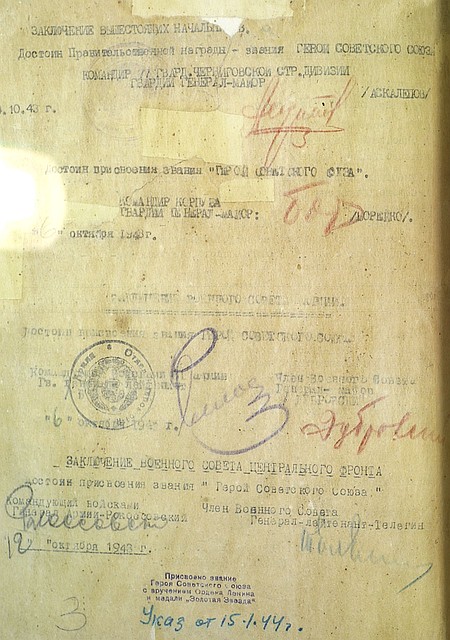 ЗАКЛЮЧЕНИЕ ВЫШЕСТОЯЩИХ НАЧАЛЬНИКОВ.
Достоин Правительственной награды - звания ГЕРОЙ СОВЕТСКОГО СОЮЗА
КОМАНДИР ГВАРД. ЧЕРНИГОВСКОЙ СТР. ДИВИЗИИ
ГВАРДИИ ГЕНЕРАЛ-МАЙОР
/АСКАЛЕПОВ/
.10.43 г.
Достоин присвоения звания "ГЕРОЙ СОВЕТСКОГО СОЮЗА".
КОМАНДИР КОРПУСА
ГВАРДИИ ГЕНЕРАЛ-МАЙОР: /БОРЕЙКО/.
"6" октября 1943г.
ЗАКЛЮЧЕНИЕ ВОЕННОГО СОВЕТА АРМИИ.
Достоин присвоения звания ГЕРОЙ СОВЕТСКОГО СОЮЗА
Член Военного Совета
Генерал-майор
"6" октября 194 г.
ЗАКЛЮЧЕНИЕ ВОЕННОГО СОВЕТА ЦЕНТРАЛЬНОГО ФРОНТА
Достоин присвоения звания " Герой Советского Союза."
Командующий войсками Член Военного Совета
Генерал Армии-Рокоссовский Генерал-лейтенант-Телегин
12 "октября 1943 г.
Присвоено звание
Героя Советского Союза
с вручением Ордена Ленина
и медали „Золотая Звезда"
Указ от 15.1.44г.
3